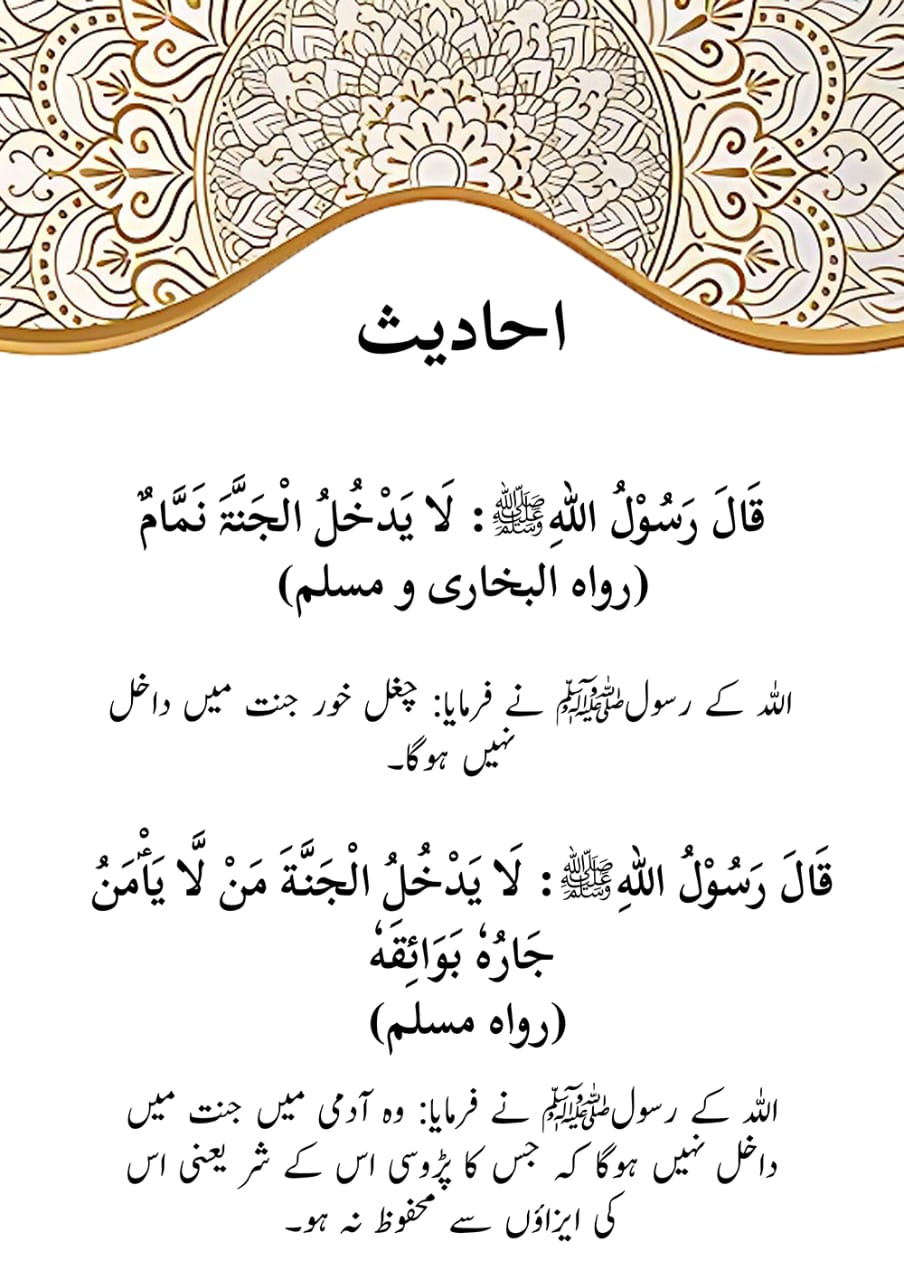 احادیث
قَالَ رَسُوْلُ اللهِﷺ: لَا يَدْخُلُ الْجَنَّةَ نَمَّامٌ
(رواه البخاری و مسلم)
اللہ کے رسولﷺ نے فرمایا: چغل خور جنت میں داخل
نہیں ہوگا۔
قَالَ رَسُوْلُ اللهِﷺ: لَا يَدْخُلُ الْجَنَّةَ مَنْ لَّا يَأْمَنُ
جَارُهٗ بَوَائِقَهٗ
(رواه مسلم)
اللہ کے رسولﷺ نے فرمایا: وہ آدمی میں جنت میں
داخل نہیں ہوگا کہ جس کا پڑوسی اس کے شر یعنی اس
کی ایزاؤں سے محفوظ نہ ہو۔